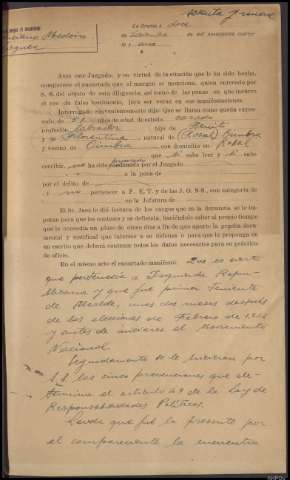 En Orense a doce
de de mil novecientos cuarenta
y nueve
Ante este Juzgado, y en virtud de la citación que le ha sido hecha,
comparece el encartado que al margen se menciona, quien enterado por
S. S. del objeto de esta diligencia, así como de las penas en que incurre
el reo de falso testimonio, jura ser veraz en sus manifestaciones.
Interrogado convenientemente dijo que se llama como queda expre-
sado de 51 años de edad, de estado casado
profesión labrador hijo de Benito
y Florentina natural de (Rosal) Cumbra
y vecino de Cumbra con domicilio en Rosal
que sí sabe leer y sí sabe
escribir, no ha sido procesado por el Juzgado
a la pena de
por el delito de
no pertenece a F. E. T. y de las J. O. N-S., con categoría de
en la Jefatura de
El Sr. Juez le dió lectura de los cargos que en la denuncia se le im-
putan para que los conteste y se defienda, haciéndole saber al propio tiempo
que le concede un plazo de cinco días a fin de que aporte la prueba docu-
mental y testifical que interese a su defensa o para que la proponga en
un escrito que deberá contener todos los datos necesarios para su práctica
de oficio.
En el mismo acto el encartado manifiesta: Que es cierto
que perteneció a Izquierda Repu-
blicana y que fué primer Teniente
de Alcalde, unos dos meses después
de las elecciones de Febrero de 1.936
y antes de iniciarse el Movimiento
Nacional.
Seguidamente se le hicieron por
S. S. las cinco prevenciones que de-
termina el artículo 49 de la Ley de
Responsabilidades Políticas.
Leída que fué la presente por
el compareciente la encuentra